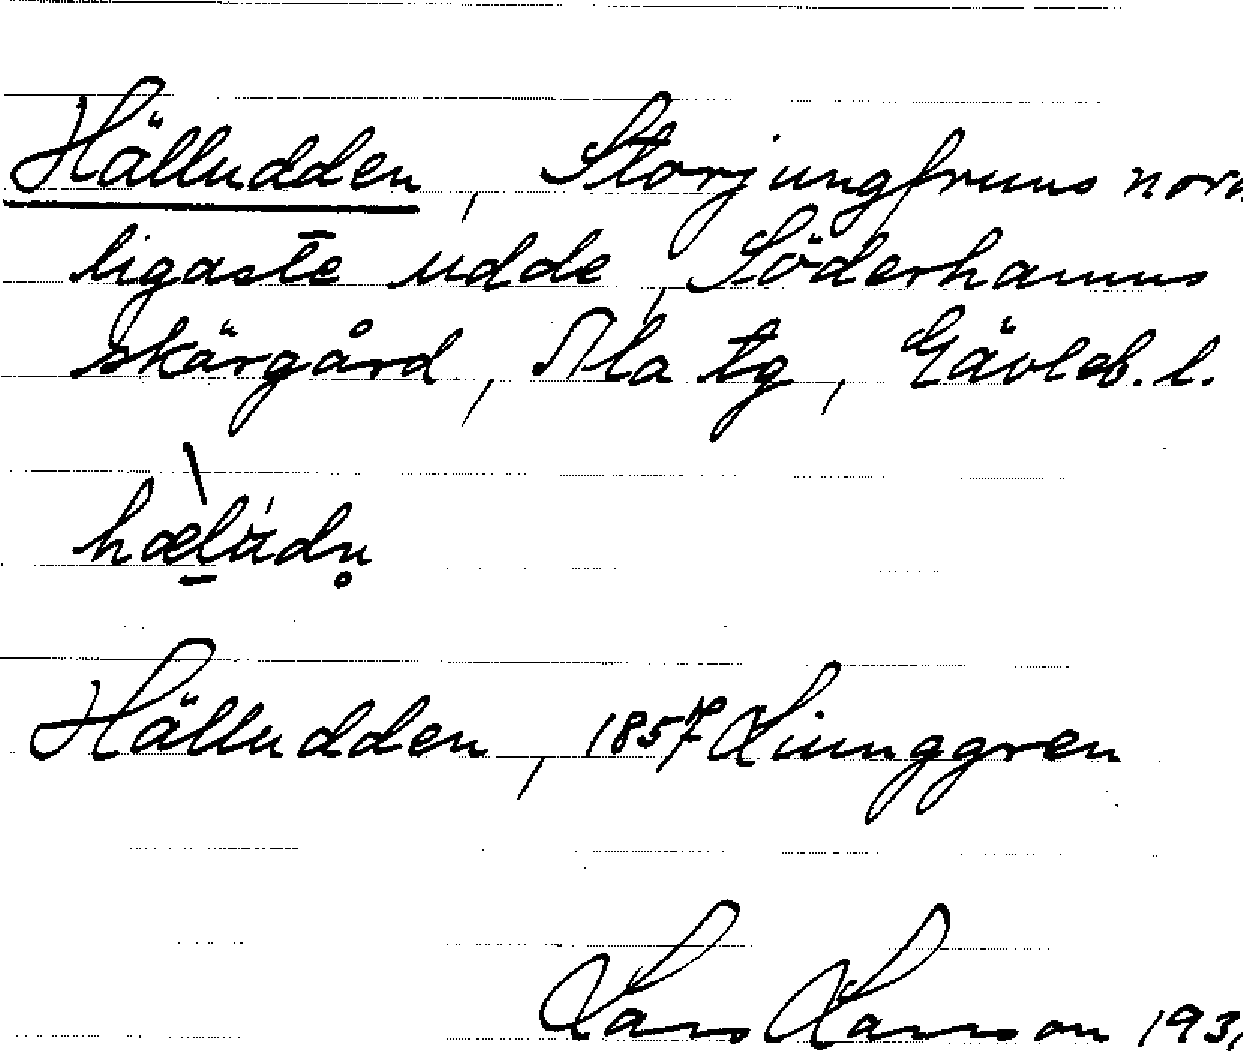 Hälludden, Storjungfruns nord
ligaste udde, Söderhamns
skärgård, Ala tg, Gävleb. l.
Hälludden, 1857 Liunggren
Lars Larsson 193